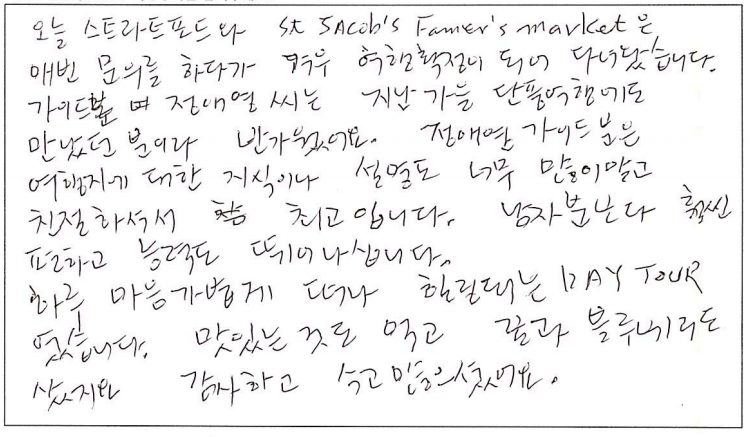 오늘 스트라트포드와 St JAcob's Famer's market은
매번 문의를 하다가 겨우 확정이 되어 다녀왔습니다.
가이드분 며 전애열 씨는 지난 가을 단풍여행에도
만났던 분이라 반가웠어요. 전애열 가이드분은
여행지에 대한 지식이나 설명도 너무 많이알고
친절하셔서 참 최고입니다. 남자분보다 훨씬
편하고 능력도 뛰어나십니다.
하루 마음가볍게 떠나 힐링되는 1DAY TOUR
였습니다. 맛있는 것도 먹고 꿀과 블루베리도
샀지요 감사하고 수고 많으셨어요.